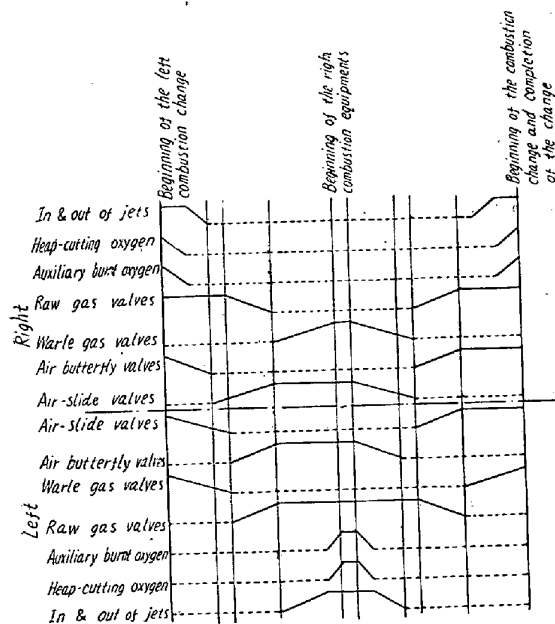 Beginning of the left
combustion change
Beginning of the righ
combustion equipments
Beginning of the combustion
change and completion
of the change
Right
In & out of jets
Heap-cutting oxygen
Auxiliary burnt oxygen
Raw gas valves
Warle gas valves
Air butterfly valves
Air-slide valves
Left
Air-slide valves
Air butterfly valves
Warle gas valves
Raw gas valves
Auxiliary burnt oxygen
Heap-cutting oxygen
In & out of jets